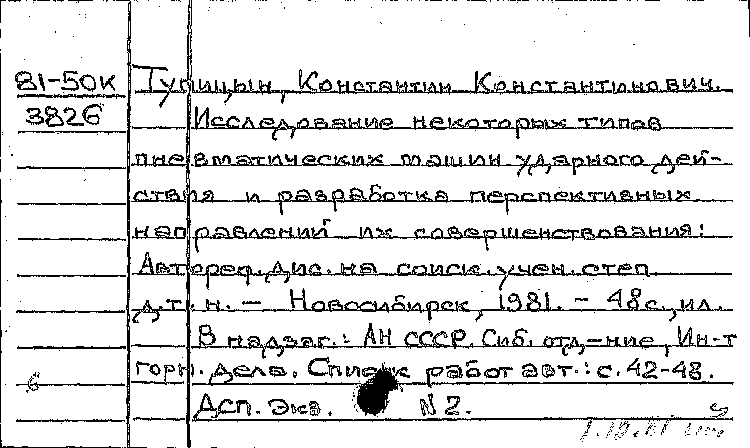 81-50к
3826
Тупицын, Константин Константинович.
Исследование некоторых типов
пневматических машин ударного дей-
ствия и разработка перспективных
направлений их совершенствования:
Автореф. дис. на соиск. учен. степ.
д.т.н. - Новосибирск, 1981. - 48с., ил.
В надзаг.: АН СССР. Сиб. отд-ние, Ин-т
горн. дела. Список работ авт.: с. 42-48.
6
ДСП. Экз. N 2.